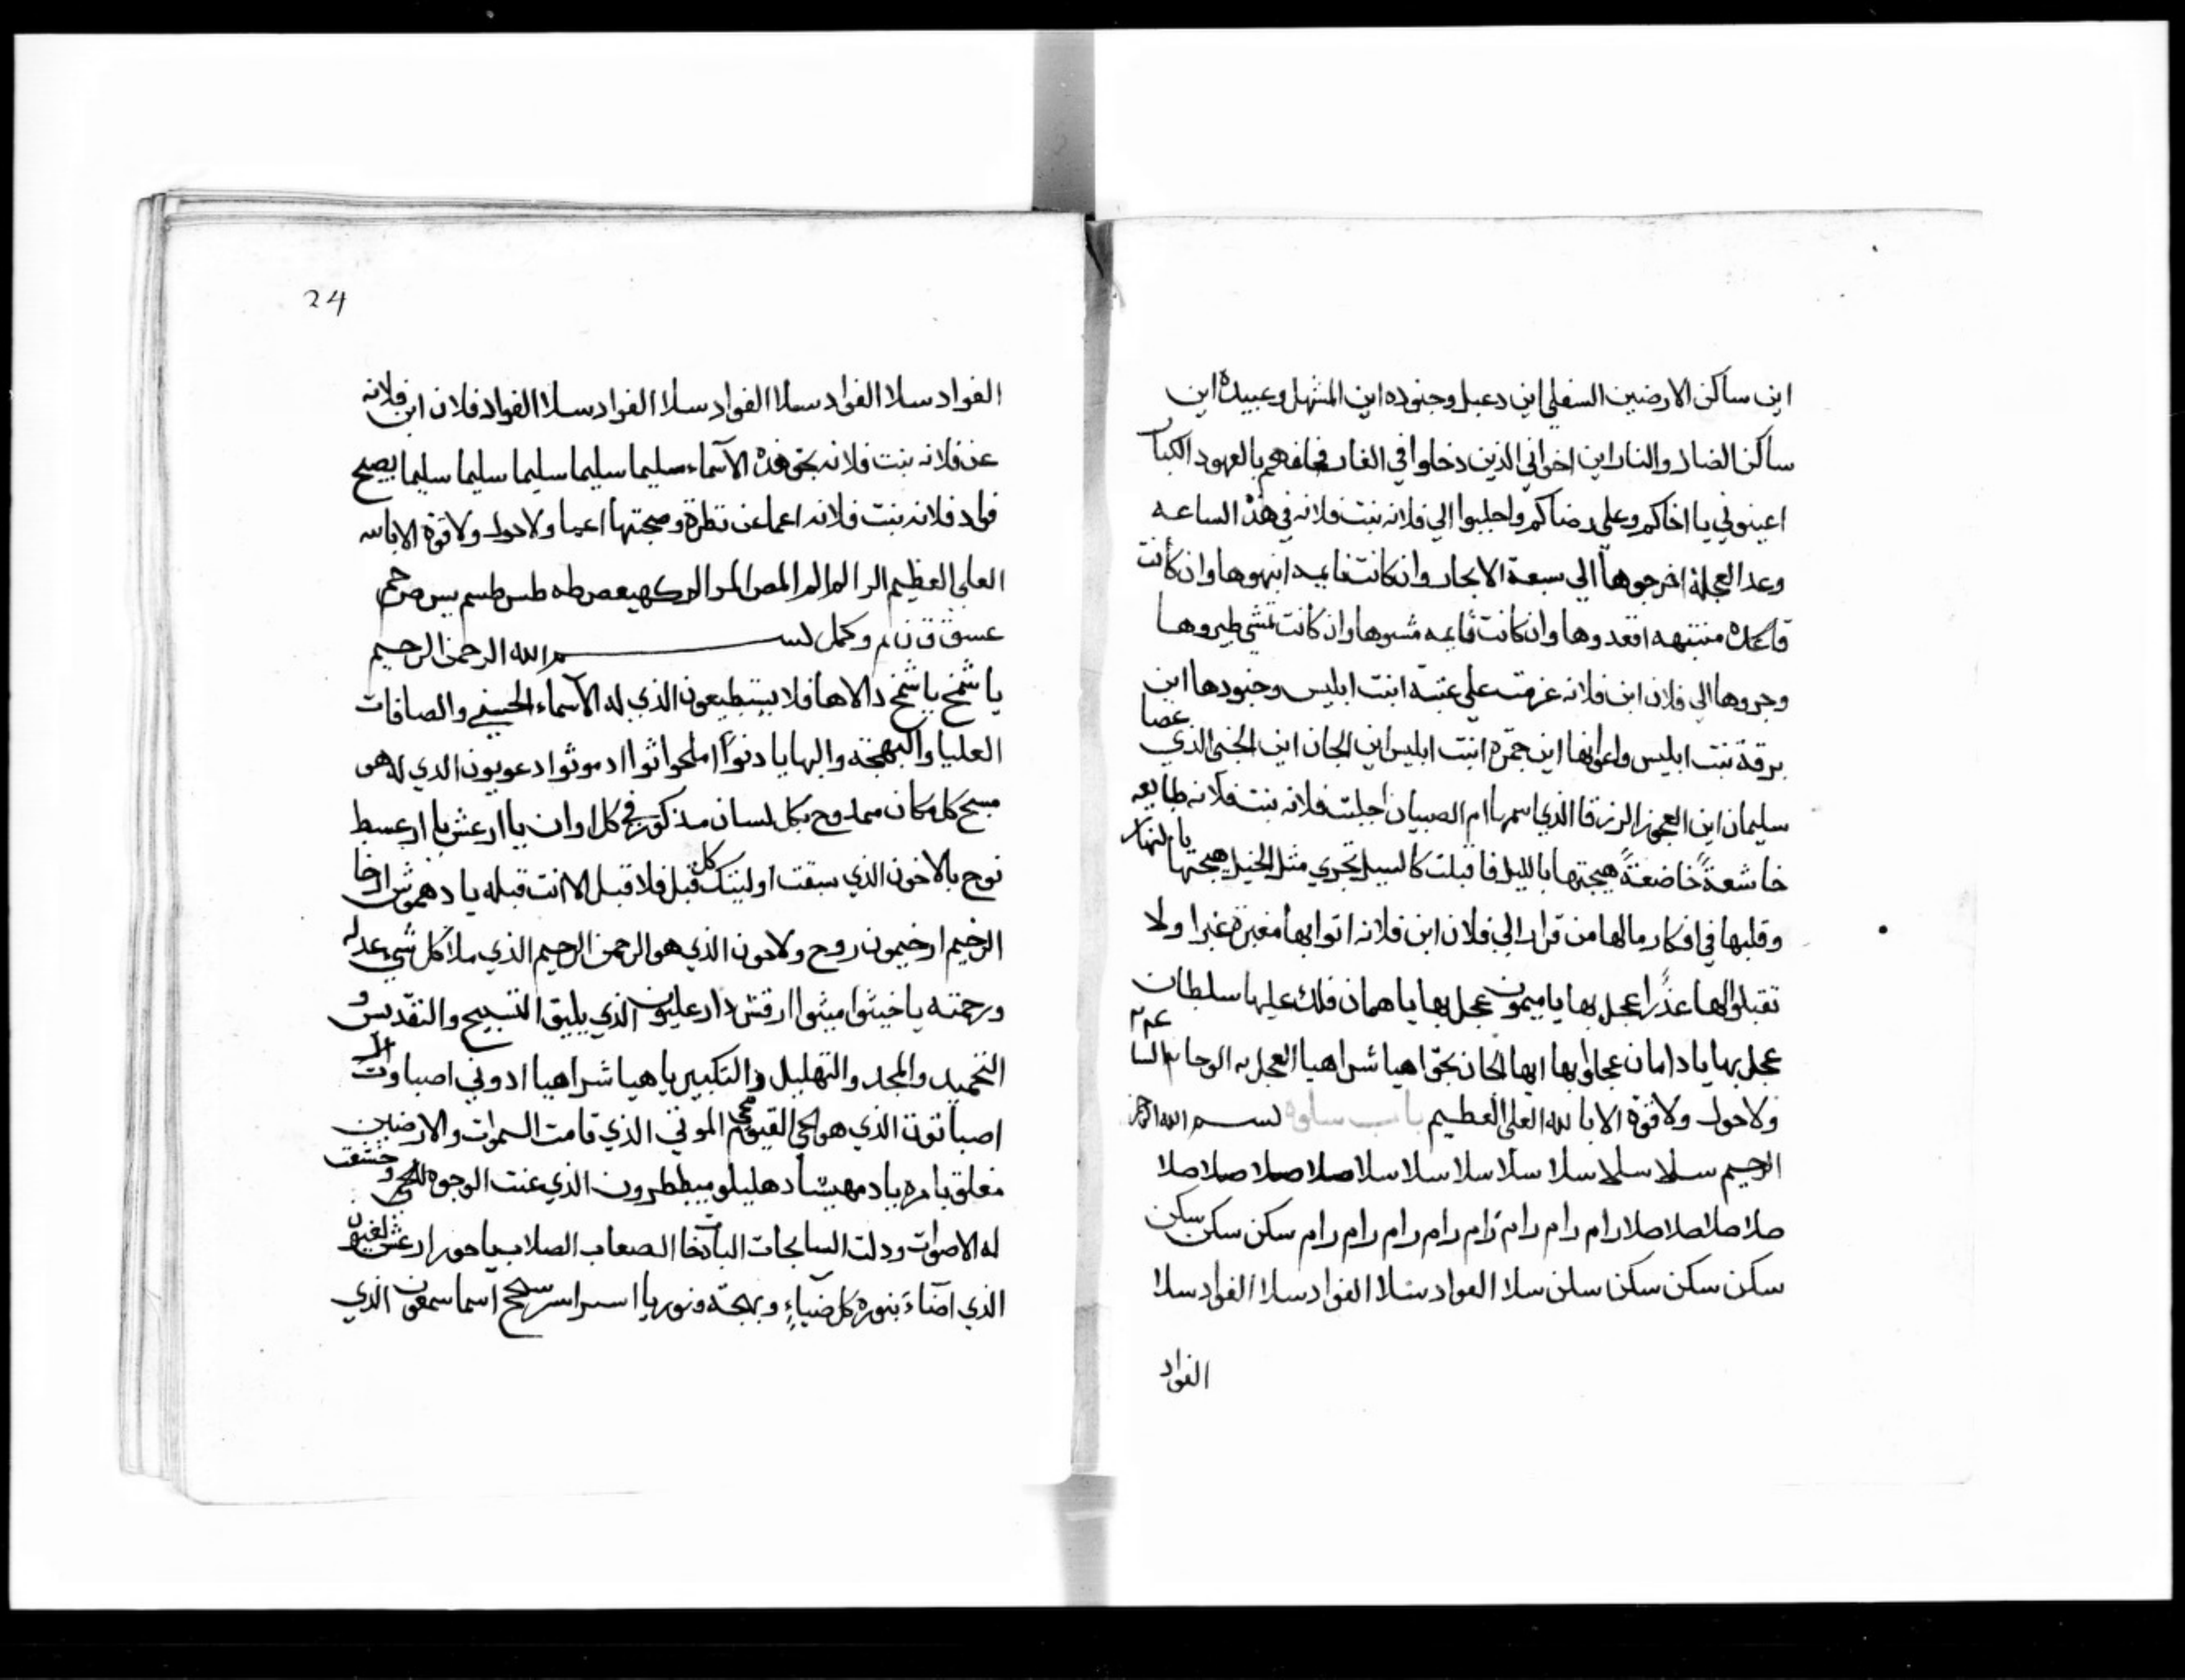 اين ساكن الارضين السفلي اين دعبل وجنوده اين المشهل وعبيده اين
ساكن الضار والنار اين اخواني الذين دخلوا في الغار فحالفهم بالعهود الكبار
اعينوني يا اخاكم وعلي رضاكم واجلبوا الي فلانه بنت فلانه في هذه الساعه
وعدا العجلة اخرجوها الي سبعة الابحار وان كانت نايمه انبهوها وان كانت
قاعده منتبهه اقعدوها وان كانت قايمه مشوها وان كانت تمشي طيروها
وجروها الي فلان ابن فلانه عزمت علي عتبة ابنت ابليس وجنودها اين
برقة بنت ابليس واعوانها اين جمرة ابنت ابليس اين الجان اين الجني الذي عصا
سليمان اين العجوز الزرقا الذي اسمها ام الصبيان اجلبت فلانه بنت فلانه طايعه
خاشعةً خاضعةً هيجتها بالليل فاقبلت كالسيل تجري مثل الخيل هيجتها بالنهار
وقلبها في افكار مالها من قرار الي فلان ابن فلانه اتوا بها مغبرة غبرا ولا
تقبلوا لها عذرا عجل بها يا ميمون عجل بها يا همان فلك عليها سلطان
عجل بها يا دامان عجلوا بها ايها الجان بحق اهيا شراهيا العجل الوحا الساعه
ولا حول ولا قوة الا بالله العلي العظيم باب سلوه بسم الله الرحمن
الرحيم سلا سلا سلا سلا سلا سلا سلا صلا صلا صلا صلا صلا
صلا صلا صلا صلا رام رام رام رام رام رام رام رام سكن سكن سكن
سكن سكن سكن سلن سلا الفواد سلا الفواد سلا الفواد سلا
الفواد
24
الفواد سلا الفواد سلا الفواد سلا الفواد سلا الفواد فلان ابن فلانه
عن فلانه بنت فلانه بحق هذه الاسماء سليما سليما سليما سليما سليما يصبح
فواد فلانه بنت فلانه اعما عن نظرة وصحبتها اعيا ولا حول ولا قوة الا بالله
العلي العظيم الر الم الم المص المر الر كهيعص طه طس طسم يس ص حم
عسق ق ن وكمل بسم الله الرحمن الرحيم
يا شمخ يا شمخ دالاها فلا يستطيعون الذي له الاسماء الحسني والصافات
العليا والبهجة والبها يا دنوا املحواثوا ادموثوا دعوبون الذي له هي
مسبح كل مكان ممدوح بكل لسان مذكور في كل اوان يا ارعش يا ارعسط
نوح بالاخون الذي سبقت اوليتك كل قبل فلا قبل الا انت قبله يا دهموش ارخا
الرخيم ارخيمون روح ولاحون الذي هو الرحمن الرحيم الذي ملأ كل شي عدله
ورحمته يا خيثوا ميثوا ارقش دار عليون الذي يليق التسبيح والتقديس و
التحميد والمجد والتهليل والتكبير يا هيا شراهيا ادوني اصباوت ال
اصباتون الذي هو الحي القيوم محي الموتي الذي قامت السموات والارضين
معلق بامره يا دمهيثا دهليلو ميططرون الذي عنت الوجوه للحي وخشعت
له الاصوات ودلت السابحات الباذخا الصعاب الصلاب يا حور ارعش
الذي اضاءَ بنوره كل ضياءٍ وبهجة ونور يا اسبراسر اسماسمعون الذي